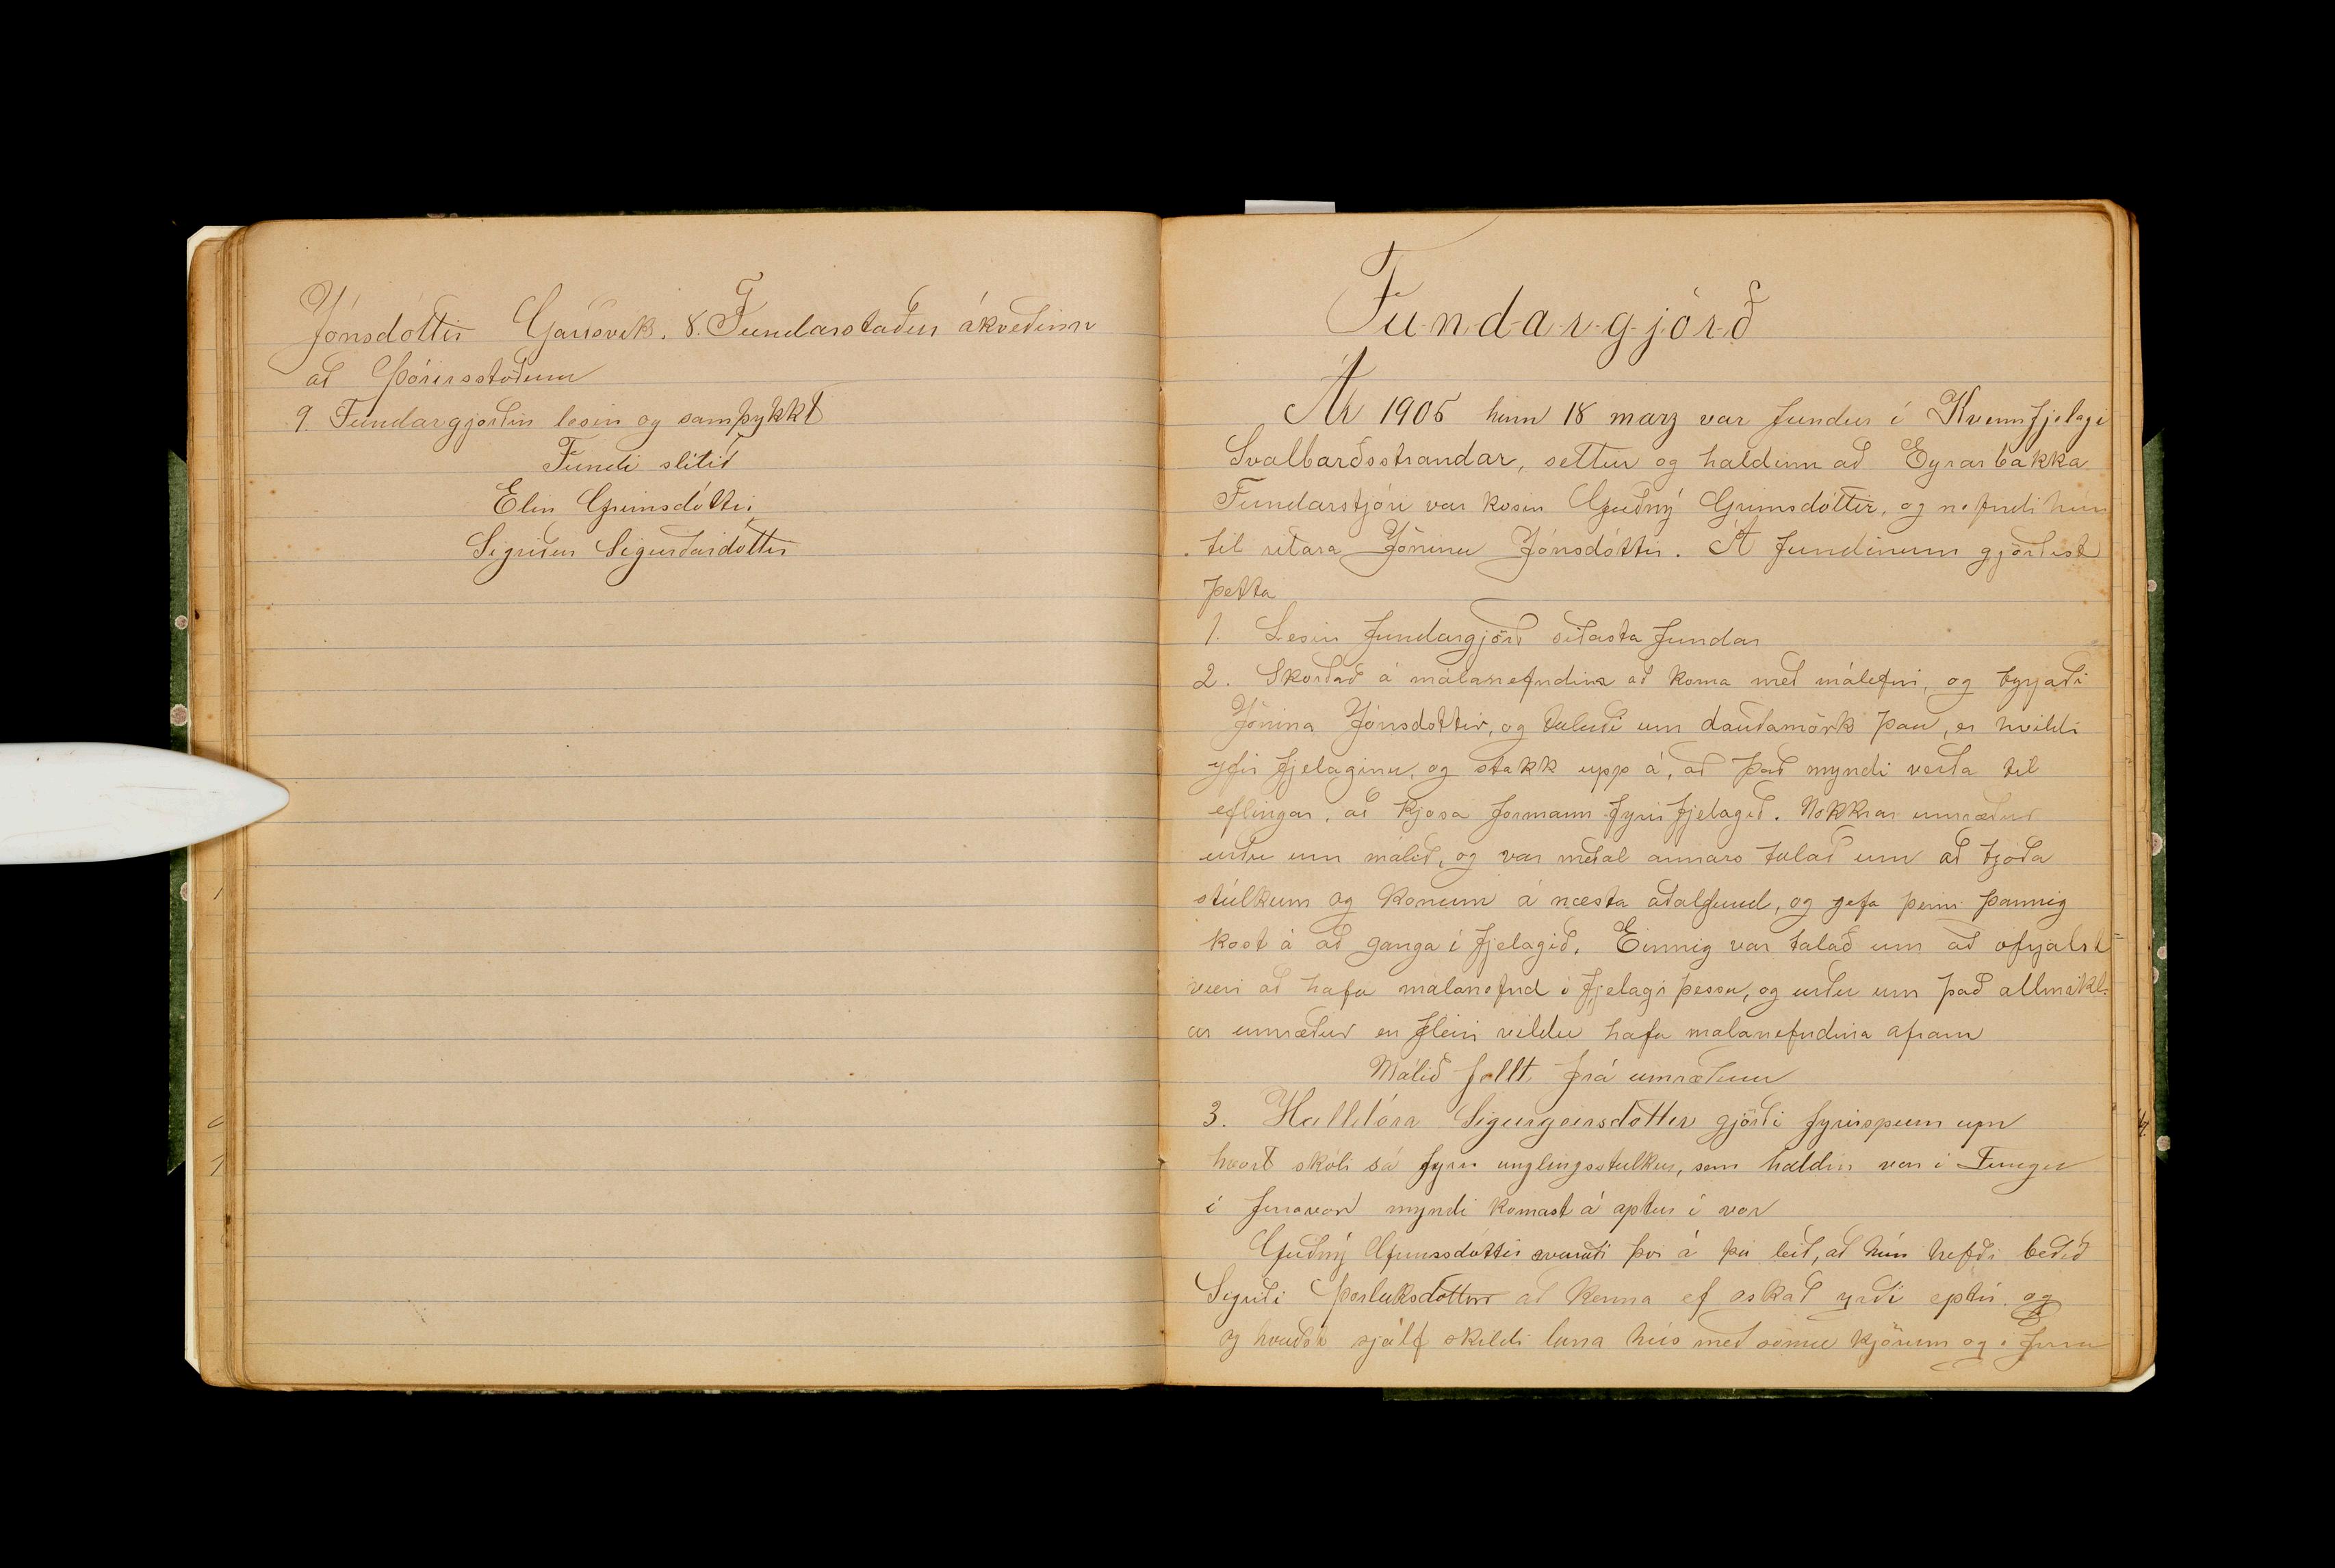 Jónsdóttir Garðsvík. 8. Fundarstaður ákveðinn
að Þórisstöðum
9. Fundargjörðin lesin og samþykkt
Fundi slitið
Elin Grímsdóttir
Sigríður Sigurðardóttir
Fu-n-d-a-r-g-j-ör-ð
Ár 1905 hinn 18 marz var fundur í Kvennfjelagi
Svalbarðsstrandar, settur og haldinn að Eyrarbakka
Fundarstjóri var kosin Guðný Grímsdóttir, og nefndi hún
til ritara Jónínu Jónsdóttir. Á fundinum gjörðist
þetta
1. Lesin fundargjörð síðasta fundar
2. Skorðað á málanefndina að koma með málefni, og byrjaði
Jónína Jónsdottir, og talaði um dauðamörk þau, er hvíldi
yfir fjelaginu, og stakk upp á, að það myndi verða til
eflingar, að kjosa formann fyrir fjelagið. Nokkrar umræður
urðu um málið, og var meðal annars talað um að bjóða
stúlkum og konum á næsta aðalfund, og gefa þeim þannig
kost á að ganga í fjelagið. Einnig var talað um að ofrjálst
væri að hafa málanefnd í fjelagi þessu, og urðu um það allmikl-
ar umræður en fleiri vildu hafa malanefndina afram
Málið fellt frá umræðum
3. Halldóra Sigurgeirsdóttir gjörði fyrirspurn um
hvort skóli sá fyrir unglingsstulkur, sem haldin var i Tungu
í fyrravor myndi komast á aptur í vor
Guðný Grímsdóttir svaraði því á þá leið, að hún hefði beðið
Sigríði Þorláksdóttur að kenna ef oskað yrði eptir og
og kvaðst sjálf skildi lána hús með sömu kjörum og i fyrra